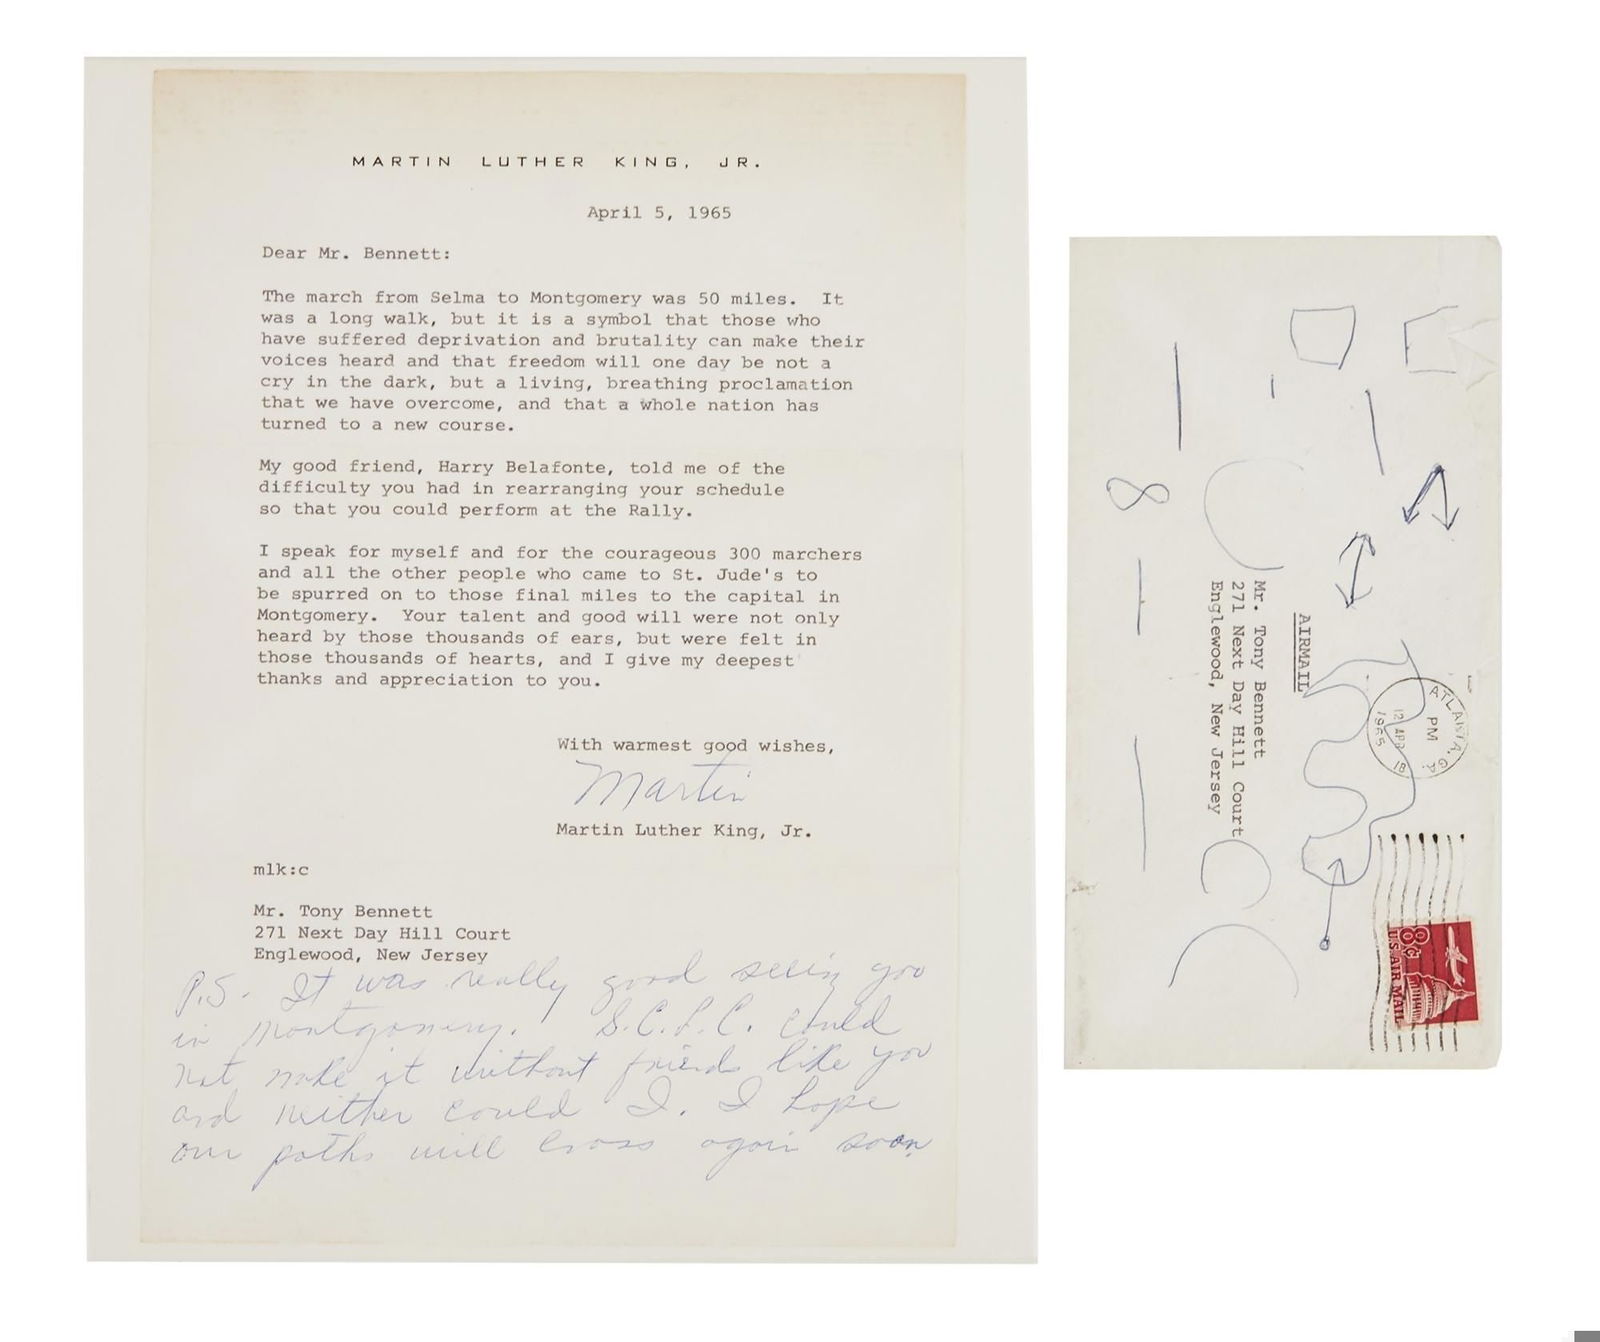 MARTIN LUTHER KING, JR.
April 5, 1965
Dear Mr. Bennett:
The march from Selma to Montgomery was 50 miles. It
was a long walk, but it is a symbol that those who
have suffered deprivation and brutality can make their
voices heard and that freedom will one day be not a
cry in the dark, but a living, breathing proclamation
that we have overcome, and that a whole nation has
turned to a new course.
My good friend, Harry Belafonte, told me of the
difficulty you had in rearranging your schedule
so that you could perform at the Rally.
I speak for myself and for the courageous 300 marchers
and all the other people who came to St. Jude's to
be spurred on to those final miles to the capital in
Montgomery. Your talent and good will were not only
heard by those thousands of ears, but were felt in
those thousands of hearts, and I give my deepest
thanks and appreciation to you.
With warmest good wishes,
Martin
Martin Luther King, Jr.
mlk:c
Mr. Tony Bennett
271 Next Day Hill Court
Englewood, New Jersey
P.S. It was really good seeing you
in Montgomery. S.C.L.C. could
not make it without friends like you
and neither could I. I hope
our paths will cross again soon
ATLANTA, GA.
PM
12 APR
1965
18
8¢
U.S. AIR MAIL
AIRMAIL
Mr. Tony Bennett
271 Next Day Hill Court
Englewood, New Jersey
8